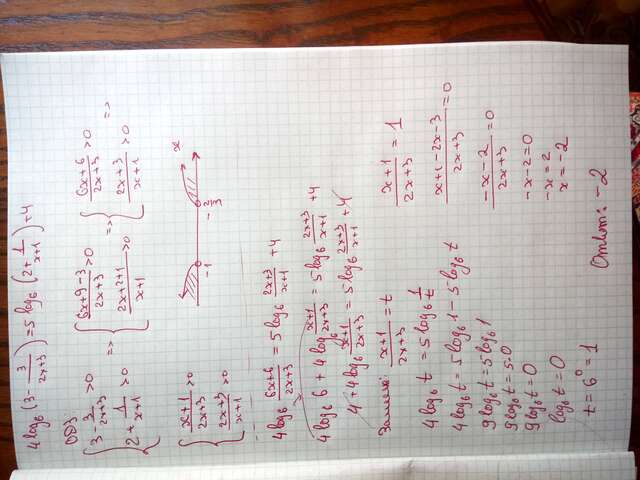 4log₆(3 - 3/(2x+3)) = 5log₆(2 + 1/(x+1)) + 4
ОДЗ
{ 3 - 3/(2x+3) > 0 => { (6x+9-3)/(2x+3) > 0 => { (6x+6)/(2x+3) > 0 =>
{ 2 + 1/(x+1) > 0 { (2x+2+1)/(x+1) > 0 { (2x+3)/(x+1) > 0
{ (x+1)/(2x+3) > 0
{ (2x+3)/(x+1) > 0
-1 -2/3 x
4log₆ (6x+6)/(2x+3) = 5log₆ (2x+3)/(x+1) + 4
4log₆ 6 + 4log₆ (x+1)/(2x+3) = 5log₆ (2x+3)/(x+1) + 4
4 + 4log₆ (x+1)/(2x+3) = 5log₆ (2x+3)/(x+1) + 4
Замена: (x+1)/(2x+3) = t
4log₆ t = 5log₆ 1/t
4log₆ t = 5log₆ 1 - 5log₆ t
9log₆ t = 5log₆ 1
9log₆ t = 5·0
9log₆ t = 0
log₆ t = 0
t = 6⁰ = 1
(x+1)/(2x+3) = 1
(x+1-2x-3)/(2x+3) = 0
(-x-2)/(2x+3) = 0
-x-2=0
-x=2
x=-2
Ответ: -2